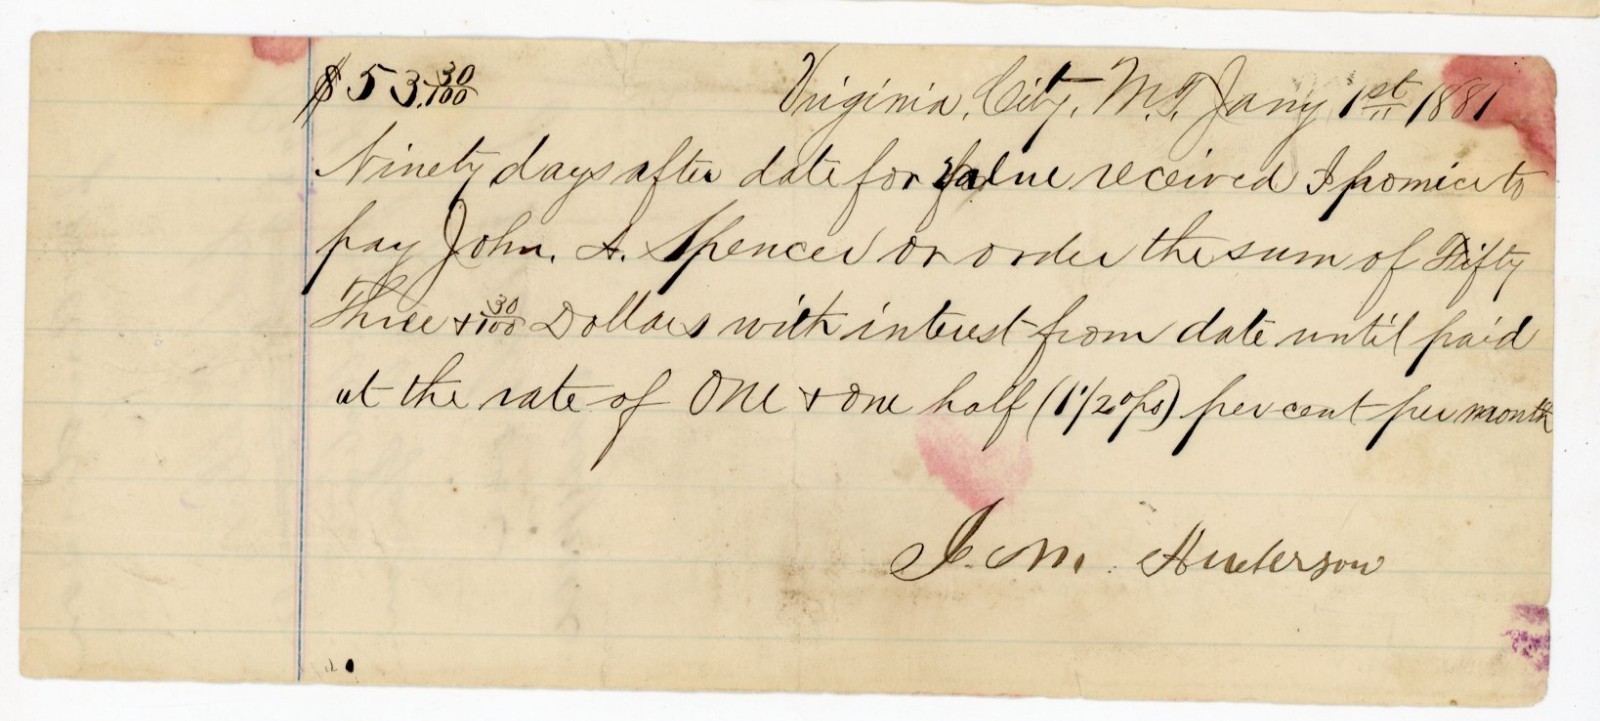 $53.30/100 Virginia, City, M.T, Jany 1st 1881
Ninety days after date for Value received I promice to
pay John. A. Spencer or order the sum of Fifty
Three + 30/100 Dollars with interest from date until paid
at the rate of One + One half (1 1/2 o/ps) per cent per month
J. M.